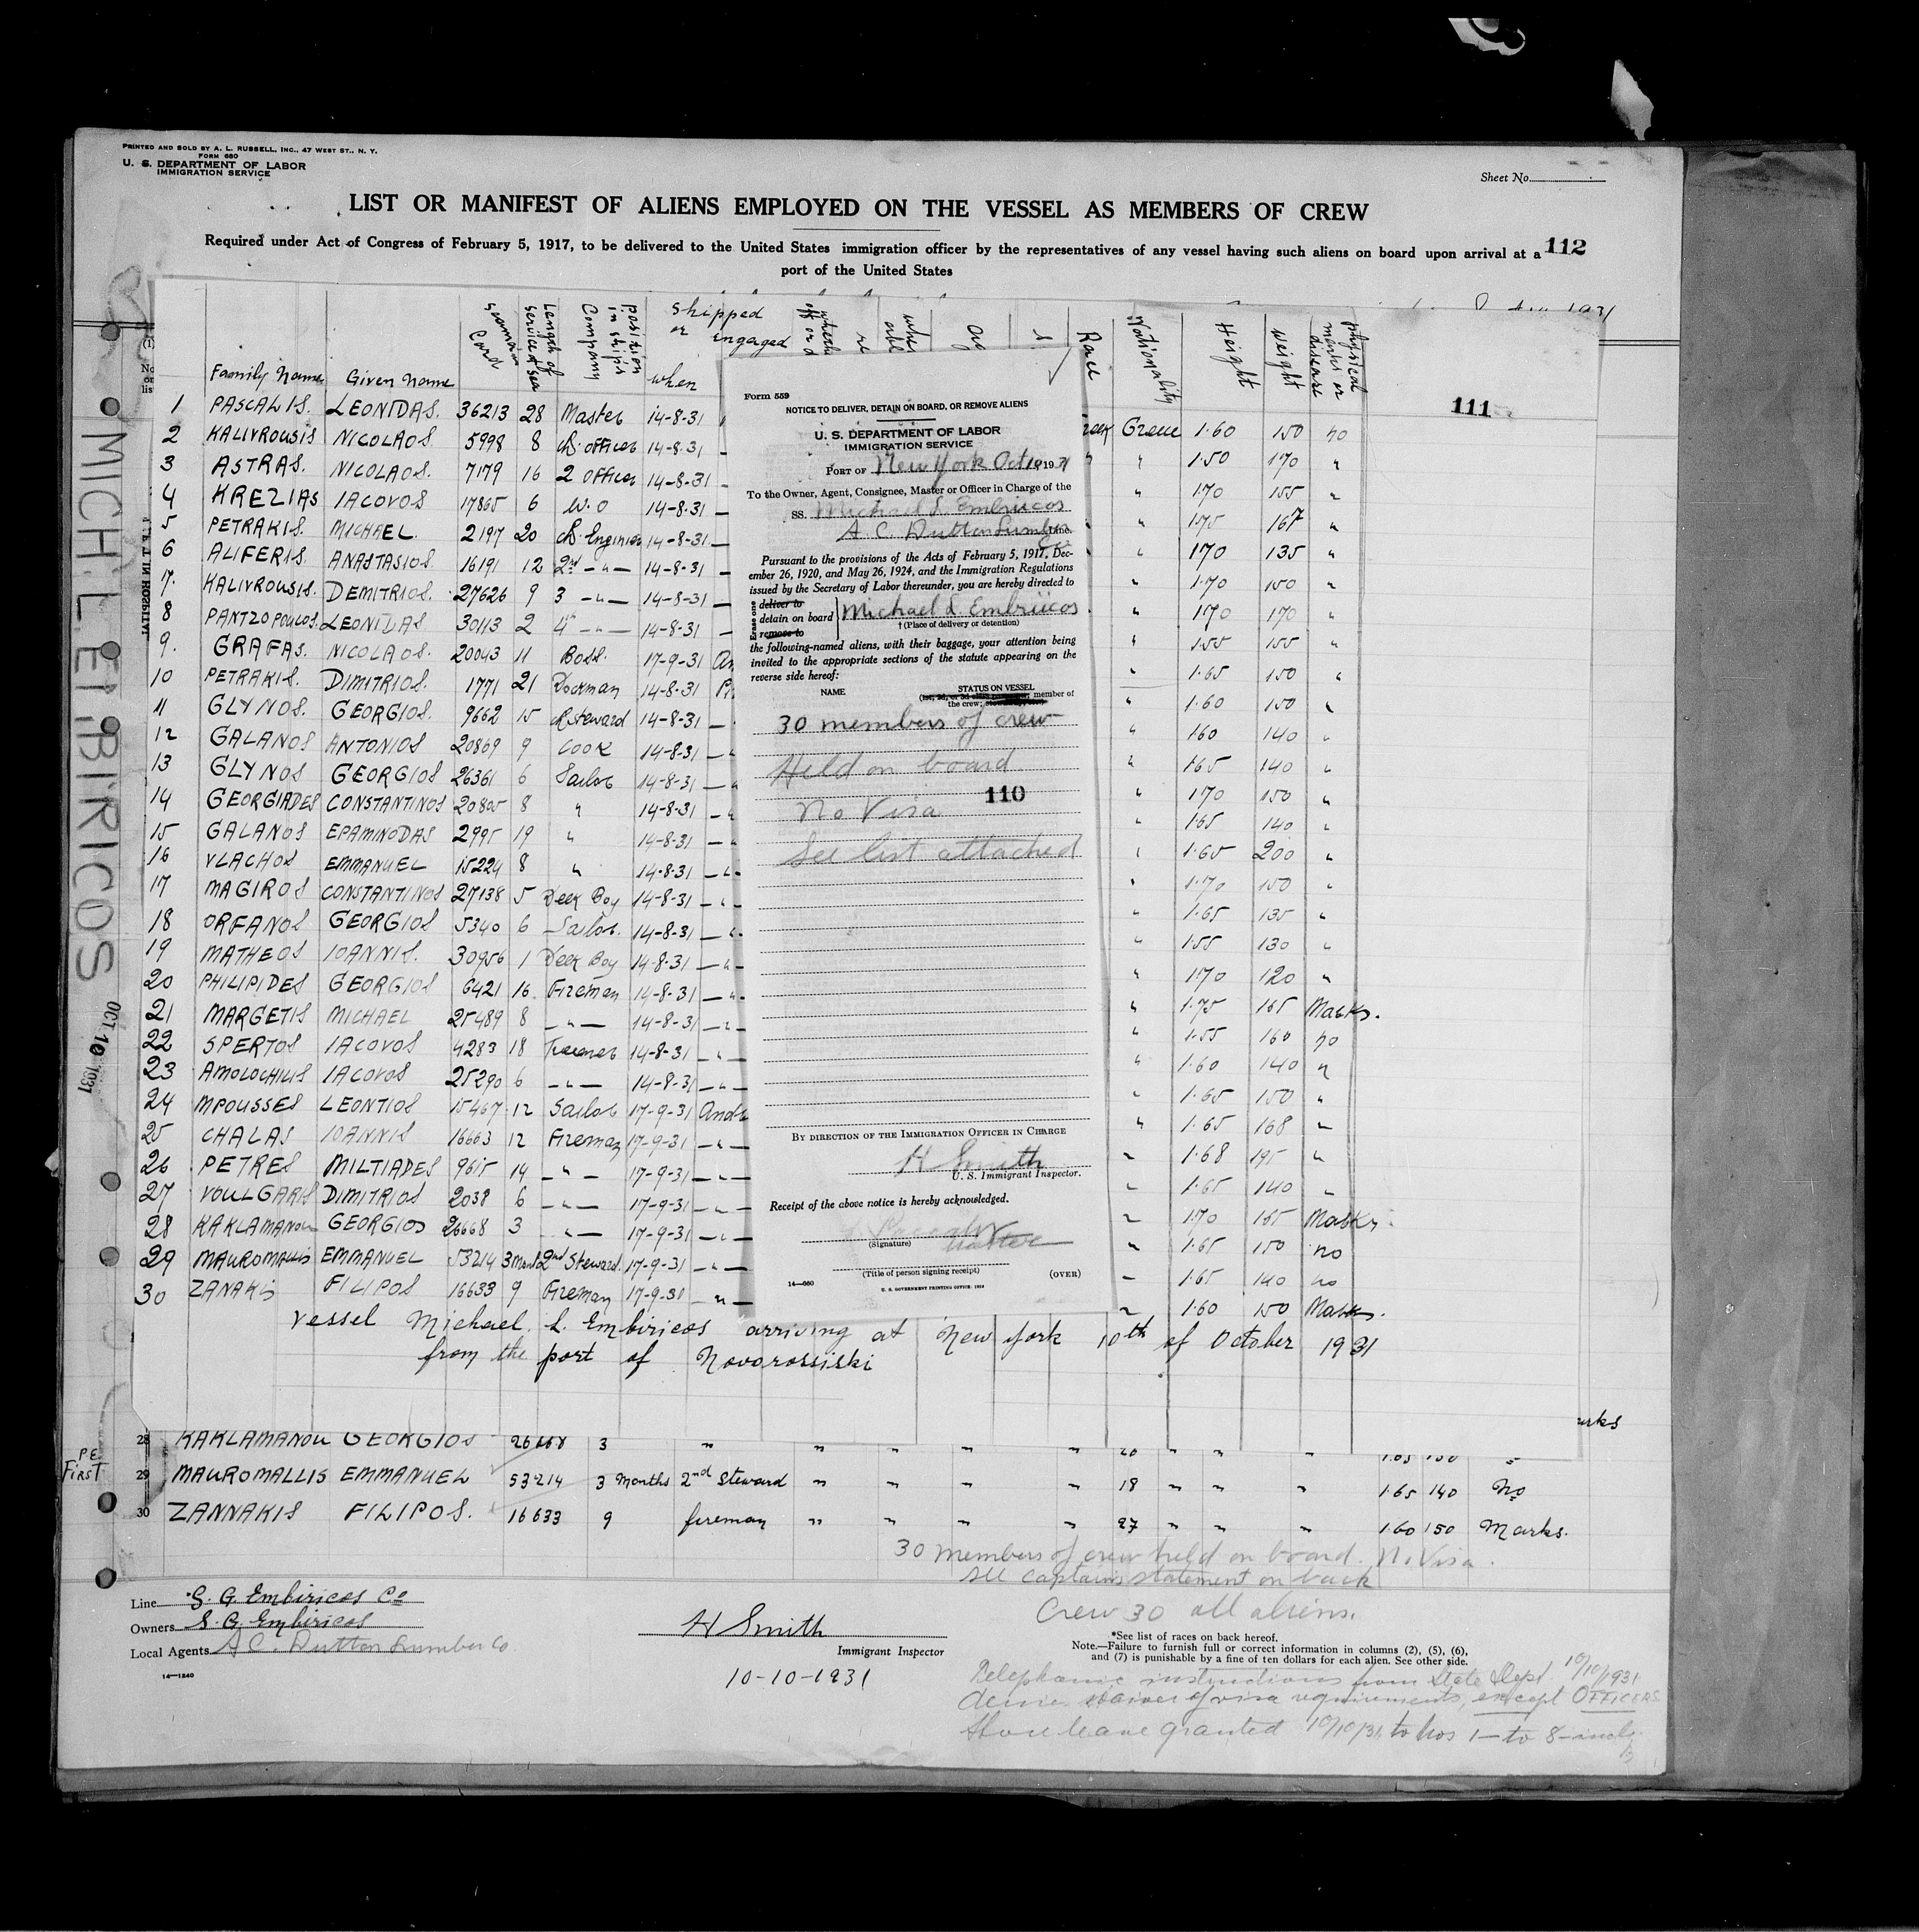 PRINTED AND SOLD BY A. L. RUSSELL, INC., 47 WEST ST., N. Y.
FORM 680
U. S. DEPARTMENT OF LABOR
IMMIGRATION SERVICE
Sheet No.
LIST OR MANIFEST OF ALIENS EMPLOYED ON THE VESSEL AS MEMBERS OF CREW
Required under Act of Congress of February 5, 1917, to be delivered to the United States immigration officer by the representatives of any vessel having such aliens on board upon arrival at a
port of the United States
112
111
MICH. L. EMBIRICOS
OCT 10 1931
Family Name Given Name Seaman Card Length of service at sea position in ship's Company shipped or engaged when Race Nationality Height weight physical marks or disease
1 PASCALIS. LEONIDAS. 36213 28 Master 14-8-31 Greece 1.60 150 no
2 KALIVROUSIS NICOLAOS 5998 8 Ch. officer 14-8-31 " 1.50 170 "
3 ASTRAS. NICOLAOS. 7179 16 2 Officer 14-8-31 " 170 155 "
4 KREZIAS IACOVOS 17865 6 W.O 14-8-31 " 175 167 "
5 PETRAKIS. MICHAEL. 2197 20 Ch. Engineer 14-8-31 " 170 135 "
6 ALIFERIS. ANASTASIOS. 16191 12 2nd -"- 14-8-31 " 1.70 150 "
7. KALIVROUSIS. DEMITRIOS. 27626 9 3 -"- 14-8-31 " 170 170 "
8 PANTZOPOULOS. LEONIDAS 30113 2 4 -"- 14-8-31 " 155 155 "
9. GRAFAS. NICOLAOS. 20043 11 Boss. 17-9-31 " 1.65 150 "
10 PETRAKIS. DIMITRIOS. 1771 21 14-8-31 " 1.60 150 "
11 GLYNOS. GEORGIOS. 9662 15 Ch Steward 14-8-31 " 160 140 "
12 GALANOS ANTONIOS 20869 9 Cook 14-8-31 " 165 140 "
13 GLYNOS GEORGIOS 26361 6 Sailor 14-8-31 " 170 150 "
14 GEORGIADES CONSTANTINOS 20805 8 " 14-8-31 " 1.65 140 "
15 GALANOS EPAMINODAS 2995 19 " 14-8-31 " 1.65 200 "
16 VLACHOS EMMANUEL 15224 8 " 14-8-31 " 1.70 150 "
17 MAGIROS CONSTANTINOS 27138 5 Deek Boy 14-8-31 " 1.65 135 "
18 ORFANOS GEORGIOS 5340 6 Sailor. 14-8-31 " 1.55 130 "
19 MATHEOS IOANNIS. 30956 1 Deek Boy 14-8-31 " 170 120 "
20 PHILIPIDES GEORGIOS 6421 16 Fireman 14-8-31 " 1.75 165 Marks.
21 MARGETIS MICHAEL 25489 8 -"- 14-8-31 " 1.55 160 no
22 SPERTOS IACOVOS 4283 18 14-8-31 " 1.60 140 "
23 AMOLOCHITIS IACOVOS 25290 6 -"- 14-8-31 " 1.65 150 "
24 MPOUSSES LEONTIOS 15467 12 Sailor 17-9-31 " 1.65 168 "
25 CHALAS IOANNIS 16663 12 Fireman 17-9-31 " 1.68 195 "
26 PETRES MILTIADES 9615 14 -"- 17-9-31 " 1.65 140 "
27 VOULGARIS DIMITRIOS 2038 6 -"- 17-9-31 " 1.70 165 Marks.
28 KAKLAMANOU GEORGIOS 26668 3 -"- 17-9-31 " 1.65 150 no
29 MAUROMALLIS EMMANUEL 53214 3 Mon 2nd Steward. 17-9-31 " 1.65 140 no
30 ZANAKIS FILIPOS 16633 9 Fireman 17-9-31 " 1.60 150 Marks.
vessel Michael. L. Embiricos arriving at New york 10th of October 1931
from the port of Novorossiski
Form 559
NOTICE TO DELIVER, DETAIN ON BOARD, OR REMOVE ALIENS
U. S. DEPARTMENT OF LABOR
IMMIGRATION SERVICE
PORT OF New York Oct 10 1931
To the Owner, Agent, Consignee, Master or Officer in Charge of the
SS. Michael L. Embriicos
A. C. Dutton Lumber Co Line.
Pursuant to the provisions of the Acts of February 5, 1917, Dec-
ember 26, 1920, and May 26, 1924, and the Immigration Regulations
issued by the Secretary of Labor thereunder, you are hereby directed to
Erase one
deliver to
detain on board
remove to
Michael L Embriicos
† (Place of delivery or detention)
the following-named aliens, with their baggage, your attention being
invited to the appropriate sections of the statute appearing on the
reverse side hereof:
NAME STATUS ON VESSEL
(1st, 2d, or 3d class passenger; member of
the crew;
30 members of crew
Held on board
No Visa 110
See list attached
BY DIRECTION OF THE IMMIGRATION OFFICER IN CHARGE
H Smith
U. S. Immigrant Inspector.
Receipt of the above notice is hereby acknowledged.
(Signature) Master
(Title of person signing receipt) (OVER)
14—660 U. S. GOVERNMENT PRINTING OFFICE
28 KAKLAMANOU GEORGIOS 26668 3 " " " " " 20 " " " 1.65 150 "
PE
FIRST
29 MAUROMALLIS EMMANUEL 53214 3 Months 2nd Steward " " " " 18 " " " 1.65 140 No
30 ZANNAKIS FILIPOS. 16633 9 fireman " " " " 27 " " " 1.60 150 Marks.
30 members of crew held on board. No Visa.
See captains statement on back
Crew 30 all aliens.
Line S. G. Embiricos Co
Owners S. G. Embiricos
Local Agents A C. Dutton Lumber Co.
14—1240
H Smith
Immigrant Inspector
10-10-1931
*See list of races on back hereof.
Note.—Failure to furnish full or correct information in columns (2), (5), (6),
and (7) is punishable by a fine of ten dollars for each alien. See other side.
Telephonic instructions from State Dept. 10/10/1931
denies waiver of visa requirements, except OFFICERS
Shore leave granted 10/10/31, to Nos 1 - to 8 - incl.